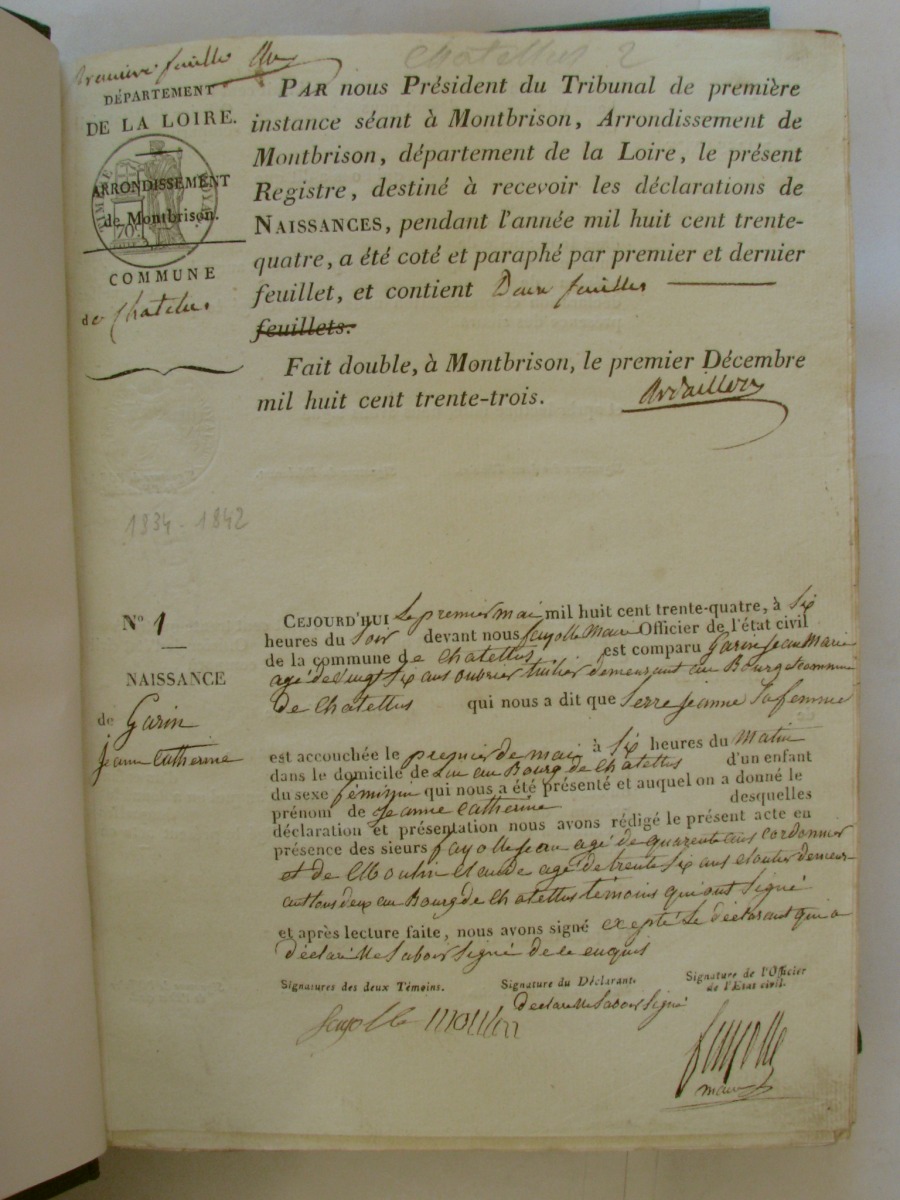 Chatellus 2
première feuille
DÉPARTEMENT
DE LA LOIRE.
ARRONDISSEMENT
de Montbrison.
COMMUNE
de Chatelus
PAR nous Président du Tribunal de première
instance séant à Montbrison, Arrondissement de
Montbrison, département de la Loire, le présent
Registre, destiné à recevoir les déclarations de
NAISSANCES, pendant l'année mil huit cent trente-
quatre, a été coté et paraphé par premier et dernier
feuillet, et contient Deux feuilles
feuillets.
Fait double, à Montbrison, le premier Décembre
mil huit cent trente-trois.
Ardaillon
1834 - 1842
N° 1
NAISSANCE
de Garin
jeanne Catherine
CEJOURD'HUI Le premier mai mil huit cent trente-quatre, à Six
heures du Soir devant nous fayolle Maire Officier de l'état civil
de la commune de Chatellus est comparu Garin jean Marie
agé de vingt Six ans oubrier tuilier demeurant au Bourg et commune
de Chatellus qui nous a dit que Serre jeanne Sa femme
est accouchée le premier de mai à Six heures du Matin
dans le domicile de Lui au Bourg de Chatellus d'un enfant
du sexe féminin qui nous a été présenté et auquel on a donné le
prénom de jeanne Catherine desquelles
déclaration et présentation nous avons rédigé le présent acte en
présence des sieurs fayolle jean agé de quarente ans cordonnier
et de Moulin Claude agé de trente Six ans cloutier demeur-
ant tous deux au Bourg de Chatellus témoins qui ont Signé
et après lecture faite, nous avons signé exepté Le déclarant qui a
déclaré Ne Saboir Signé de ce enquis
Signatures des deux Témoins.
Signature du Déclarant.
Signature de l'Officier
de l'Etat civil.
declare Ne Saboir Signé
fayolle moulin
fayolle
maire